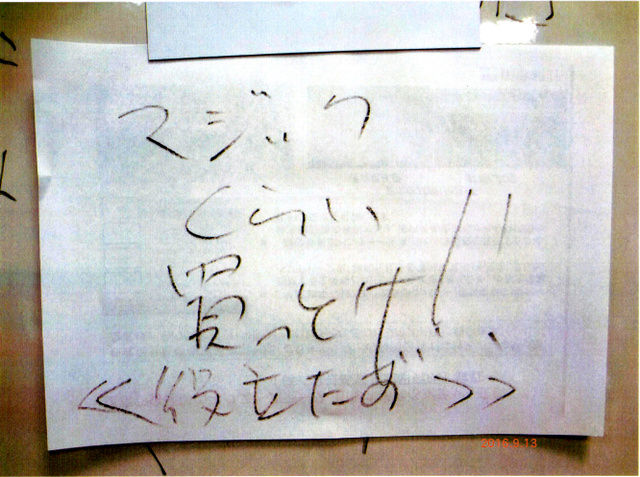 マジック
くらい
買っとけ!!
≪役立たず≫
2016.9.13